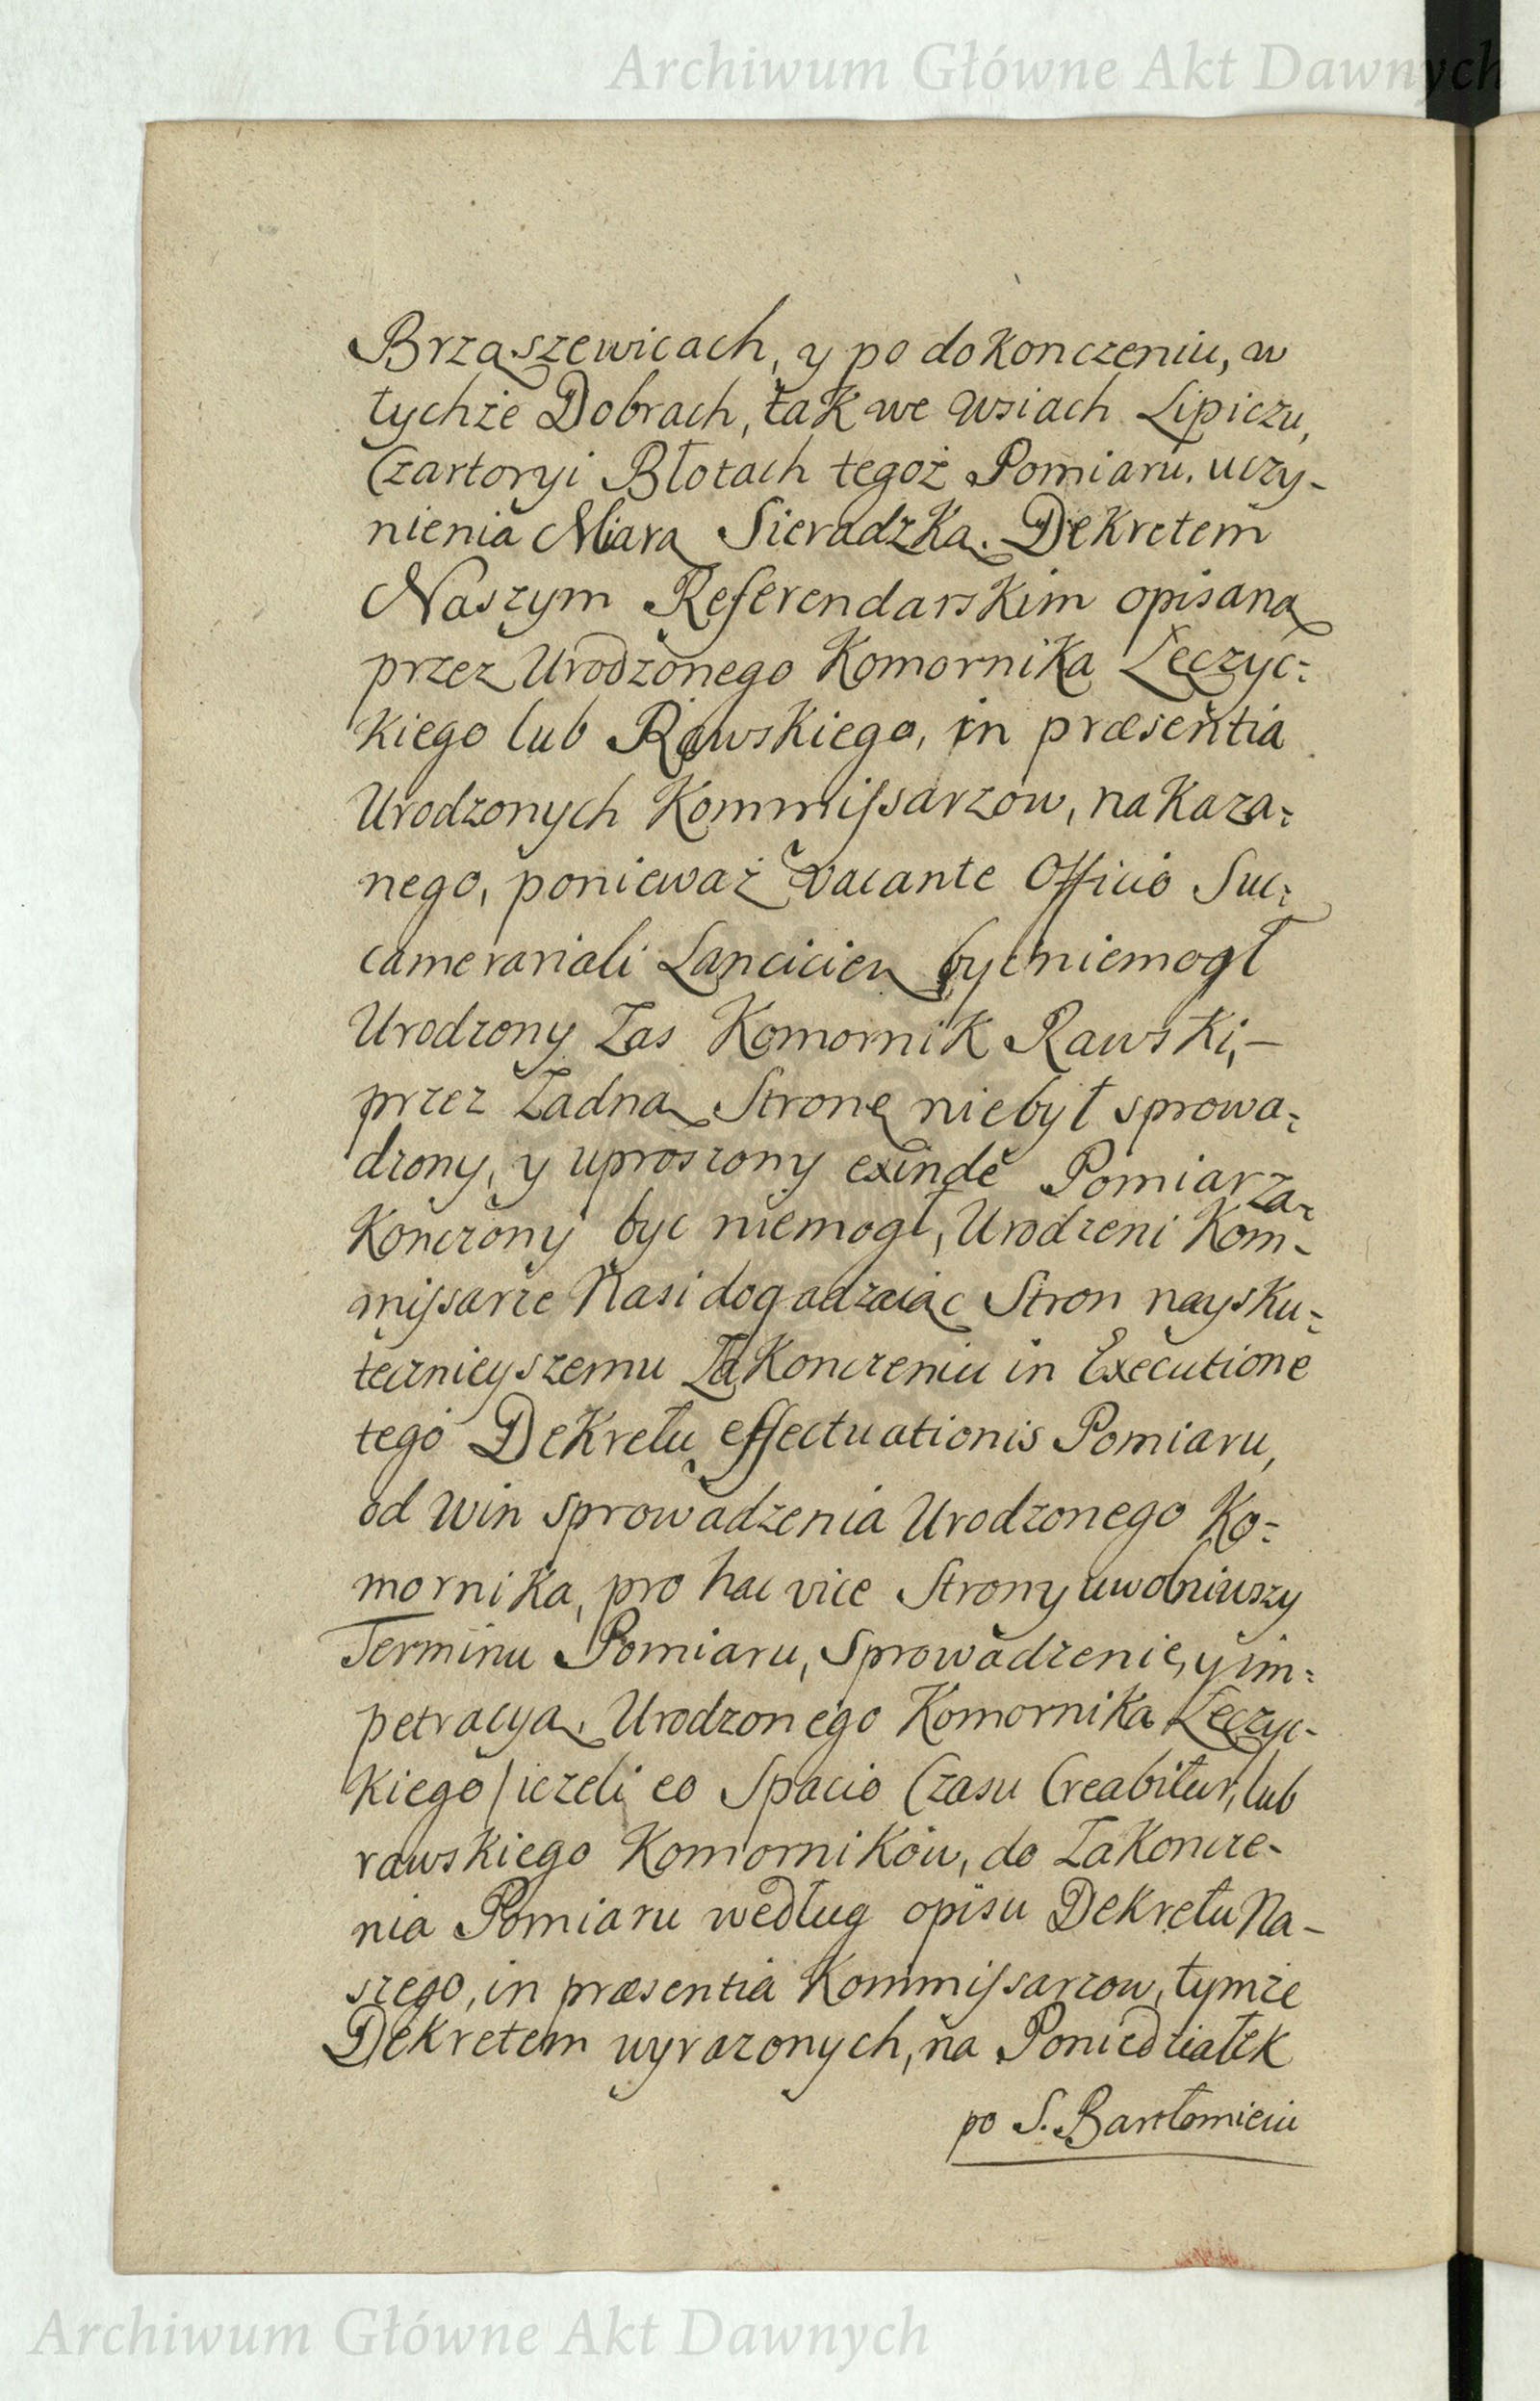 Archiwum Główne Akt Dawnych
Brząszewicach, y po dokonczeniu, w
tychże Dobrach, tak we wsiach Lipiczu,
Czartoryi Błotach tegoż Pomiaru. uczy-
nienia Miarą Sieradzką. Dekretem
Naszym Referendarskim opisaną
przez Urodzonego Komornika Łęczyc:
kiego lub Rawskiego, in præsentia
Urodzonych Kommissarzow, nakaza:
nego, ponieważ vacante Officio Suc:
camerariali Lancicien bydz niemogł
Urodzony Zas Komornik Rawski,—
przez Żadną Stronę niebył sprowa:
dzony, y uproszony exinde Pomiar za:
konczony byc niemogł, Urodzeni Kom-
missarze Nasi dogadzaiąc Stron naysku:
tecznieyszemu Zakonczeniu in Executione
tego Dekretu effectuationis Pomiaru,
od win sprowadzenia Urodzonego Ko:
mornika, pro hac vice Strony uwolniwszy
Terminu Pomiaru, Sprowadzenie, y im:
petracyą. Urodzonego Komornika Łęczyc-
kiego / iezeli eo Spacio Czasu Creabitur, lub
rawskiego Komorników, do Zakoncze-
nia Pomiaru według opisu Dekretu Na-
szego, in præsentia Kommissarzow, tymże
Dekretem wyrazonych, na Poniedziałek
po S. Bartłomieiu
Archiwum Główne Akt Dawnych